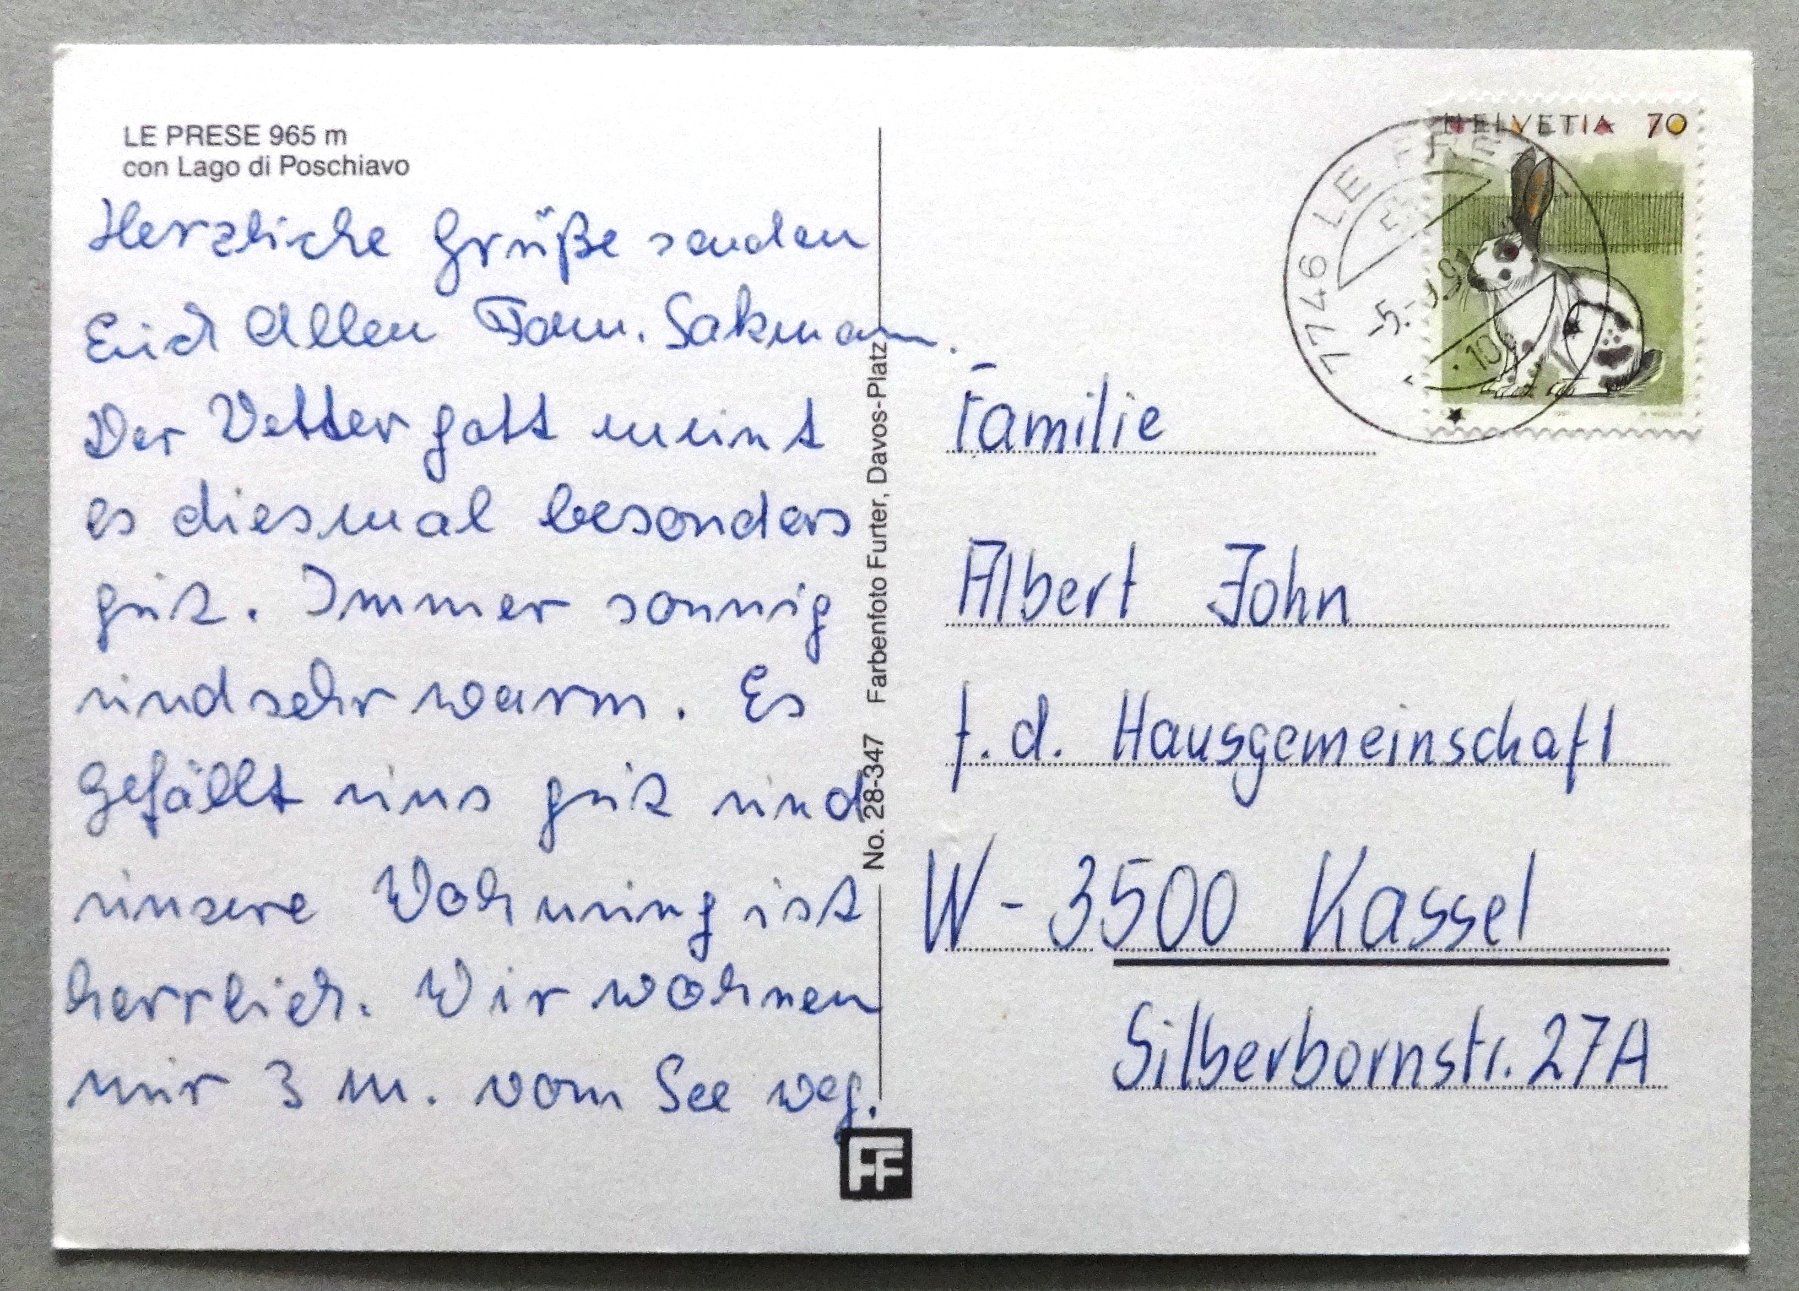 LE PRESE 965 m
con Lago di Poschiavo
Herzliche Grüße senden
Euch Allen Fam. Sakmann.
Der Wettergott meint
es diesmal besonders
gut. Immer sonnig
und sehr warm. Es
gefällt uns gut und
unsere Wohnung ist
herrlich. Wir wohnen
nur 3 m. vom See weg.
No. 28-347 Farbenfoto Furter, Davos-Platz
FF
HELVETIA 70
7746 LE PRESE
-5.-9.91
Familie
Albert John
f. d. Hausgemeinschaft
W-3500 Kassel
Silberbornstr. 27A